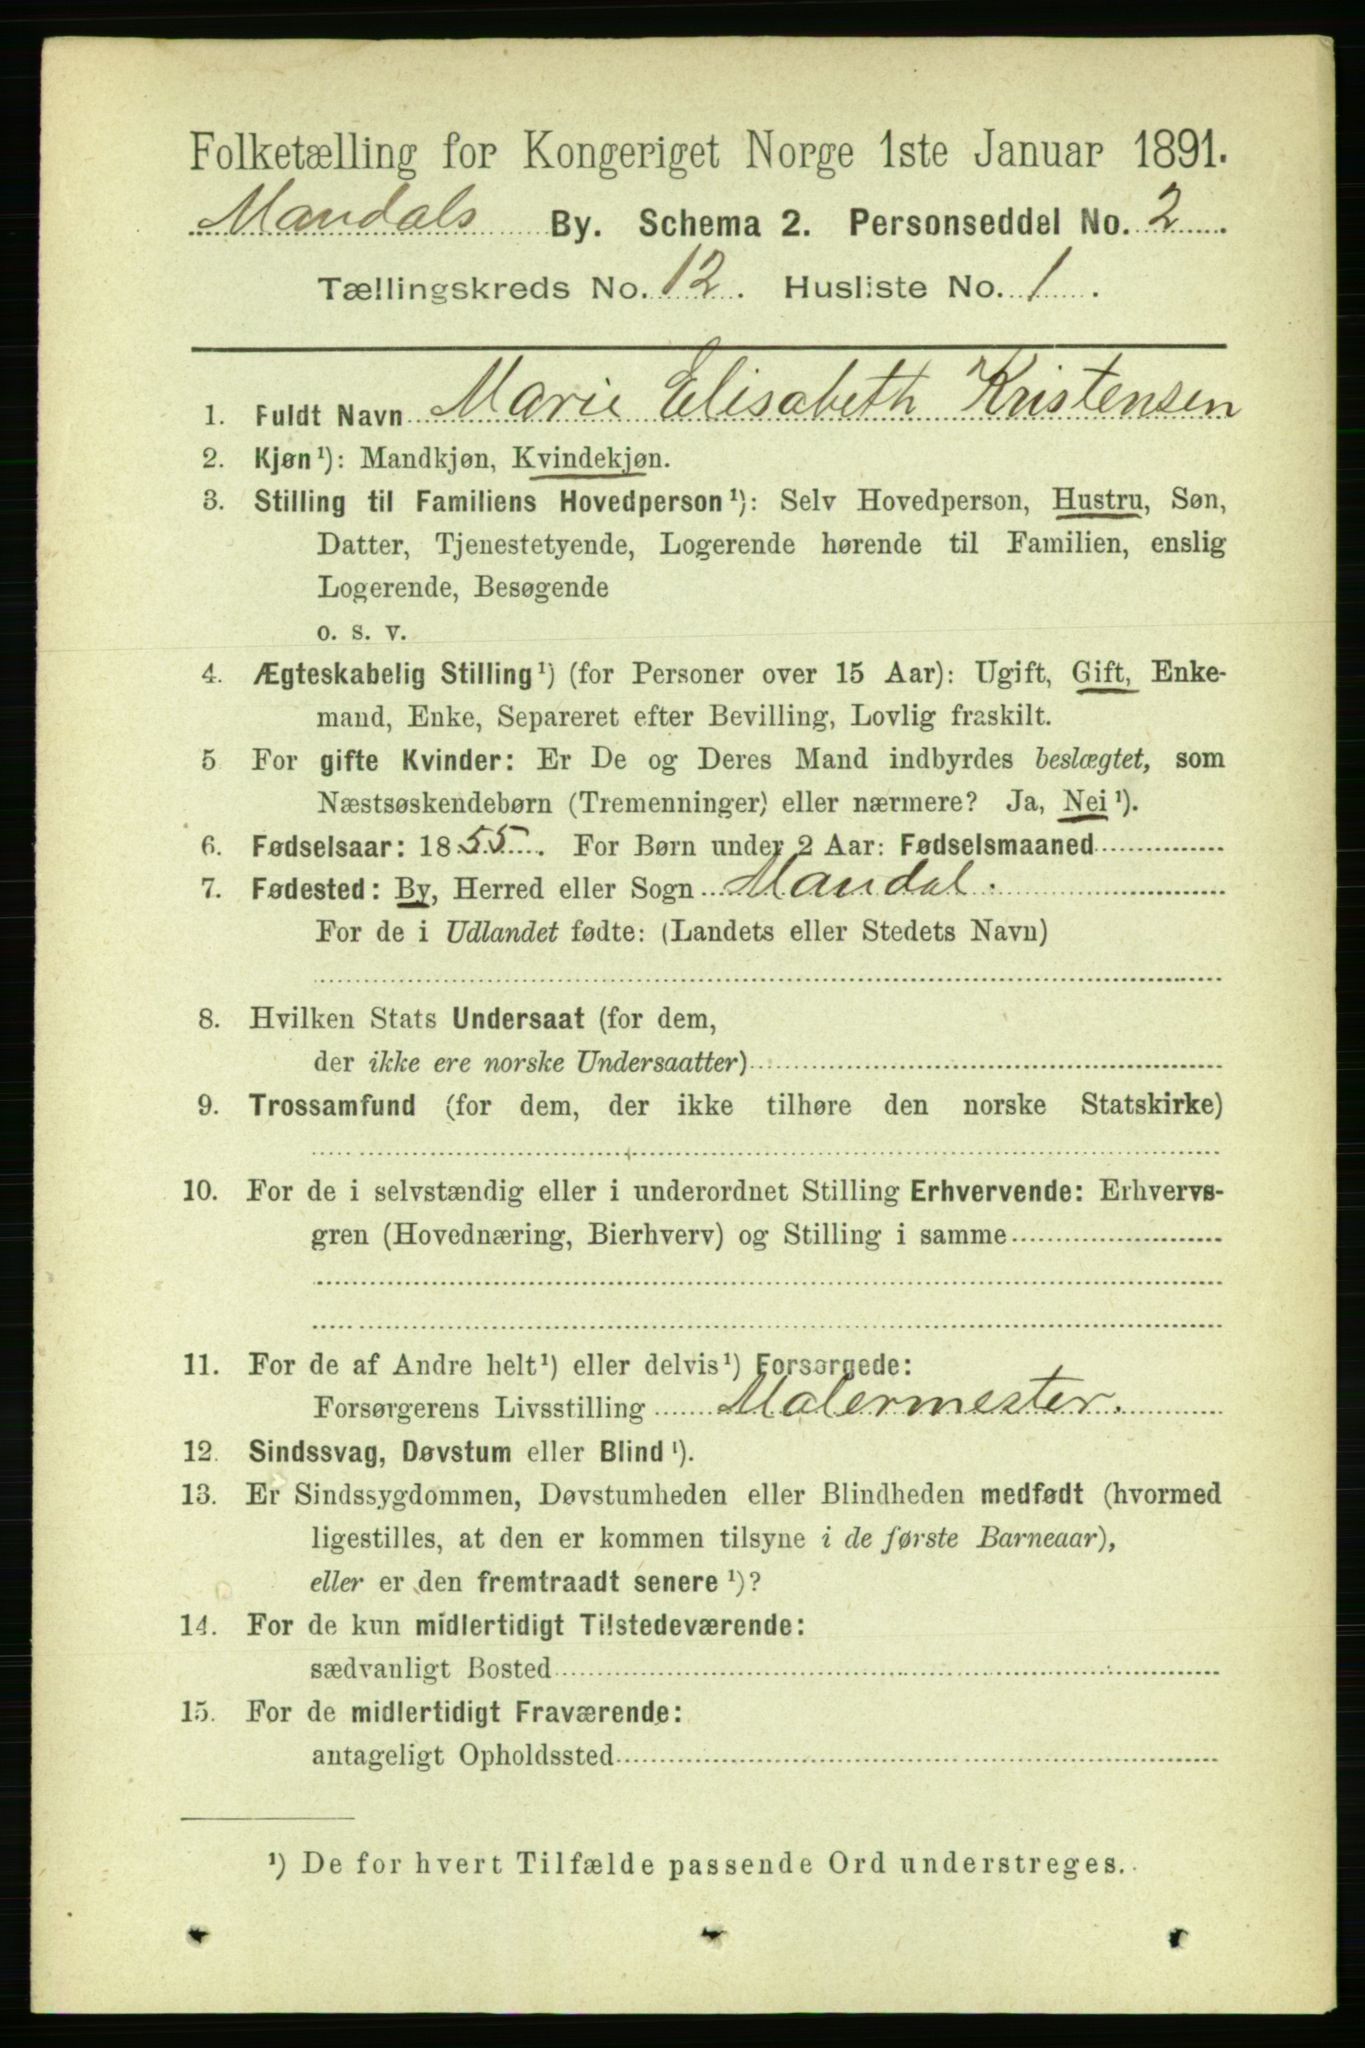 Folketælling for Kongeriget Norge 1ste Januar 1891.
Mandals By. Schema 2. Personseddel No. 2
Tællingskreds No. 12. Husliste No. 1.
1. Fuldt Navn Marie Elisabeth Kristensen
2. Kjøn¹): Mandkjøn, Kvindekjøn.
3. Stilling til Familiens Hovedperson¹): Selv Hovedperson, Hustru, Søn,
Datter, Tjenestetyende, Logerende hørende til Familien, enslig
Logerende, Besøgende
o. s. v.
4. Ægteskabelig Stilling¹) (for Personer over 15 Aar): Ugift, Gift, Enke-
mand, Enke, Separeret efter Bevilling, Lovlig fraskilt.
5 For gifte Kvinder: Er De og Deres Mand indbyrdes beslægtet, som
Næstsøskendebørn (Tremenninger) eller nærmere? Ja, Nei¹).
6. Fødselsaar: 1855. For Børn under 2 Aar: Fødselsmaaned
7. Fødested: By, Herred eller Sogn Mandal.
For de i Udlandet fødte: (Landets eller Stedets Navn)
8. Hvilken Stats Undersaat (for dem,
der ikke ere norske Undersaatter)
9. Trossamfund (for dem, der ikke tilhøre den norske Statskirke)
10. For de i selvstændig eller i underordnet Stilling Erhvervende: Erhvervs-
gren (Hovednæring, Bierhverv) og Stilling i samme
11. For de af Andre helt¹) eller delvis¹) Forsørgede:
Forsørgerens Livsstilling Malermester.
12. Sindssvag, Døvstum eller Blind¹).
13. Er Sindssygdommen, Døvstumheden eller Blindheden medfødt (hvormed
ligestilles, at den er kommen tilsyne i de første Barneaar),
eller er den fremtraadt senere¹)?
14. For de kun midlertidigt Tilstedeværende:
sædvanligt Bosted
15. For de midlertidigt Fraværende:
antageligt Opholdssted
¹) De for hvert Tilfælde passende Ord understreges.